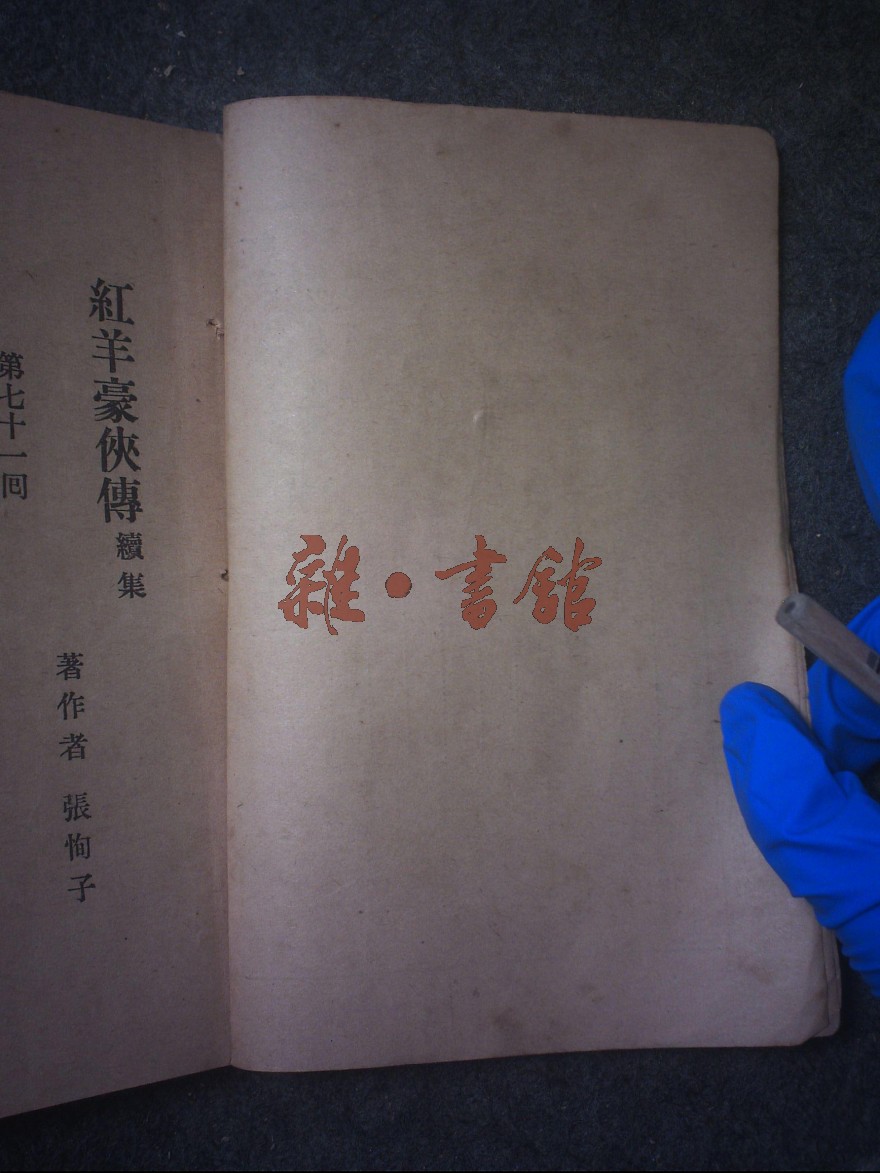 雜·書館
紅羊豪俠傳續集
著作者 張恂子
第七十一回